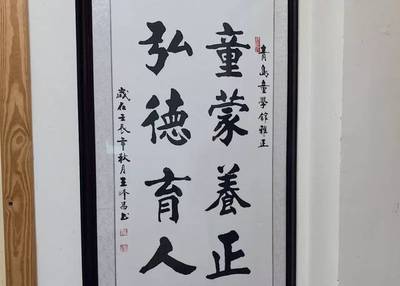 青島童學館雅正
童蒙養正
弘德育人
歲在壬辰年秋月王